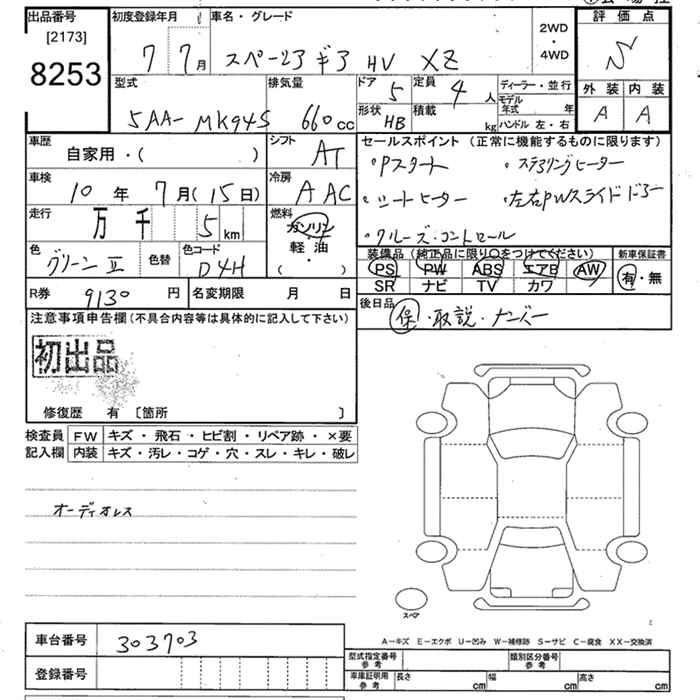 出品番号 初度登録年月 車名・グレード 2WD・4WD 評価点
[2173]
8253
7 7月 スペーシアギア HV XZ S
型式 排気量 ドア 5 定員 4人 ディーラー・並行 外装 内装
5AA-MK94S 660cc 形状 HB 積載 kg モデル年式 年 A A
ハンドル 左・右
車歴 自家用・( ) シフト AT セールスポイント (正常に機能するものに限ります)
・Pスタート ・ステアリングヒーター
車検 10年 7月(15日) 冷房 AAC ・シートヒーター ・左右PWスライドドアー
走行 万 千 5 km 燃料 ガソリン・軽・油 ( ) ・クルーズ・コントロール
色 グリーンII 色替 色コード D4H 装備品 (純正品に限り○をつけてください) 新車保証書
PS PW ABS エアB AW 有・無
SR ナビ TV カワ
R券 9130 円 名変期限 月 日 後日品
保・取説・ナンバー
注意事項申告欄(不具合内容等は具体的に記入して下さい)
初出品
修復歴 有 〔箇所 〕
検査員記入欄 FW キズ・飛石・ヒビ割・リペア跡・×要
内装 キズ・汚レ・コゲ・穴・スレ・キレ・破レ
オーディオレス
スペア
A−キズ E−エクボ U−凹み W−補修跡 S−サビ C−腐食 XX−交換済
車台番号 303703 型式指定番号 参考 類別区分番号 参考
登録番号 車庫証明用 参考 長さ cm 幅 cm 高さ cm